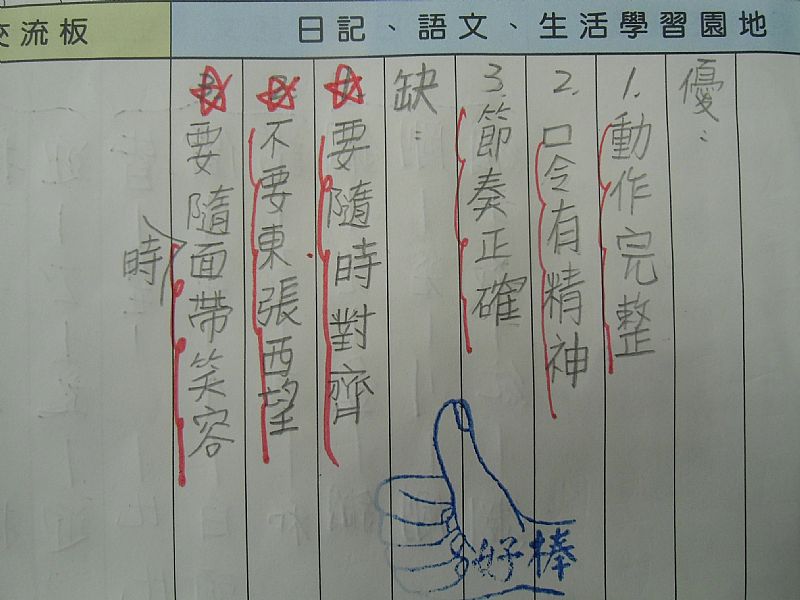 交流板
日記、語文、生活學習園地
優：
1. 動作完整
2. 口令有精神
3. 節奏正確
缺：
要隨時對齊
不要東張西望
要隨時面帶笑容
好棒